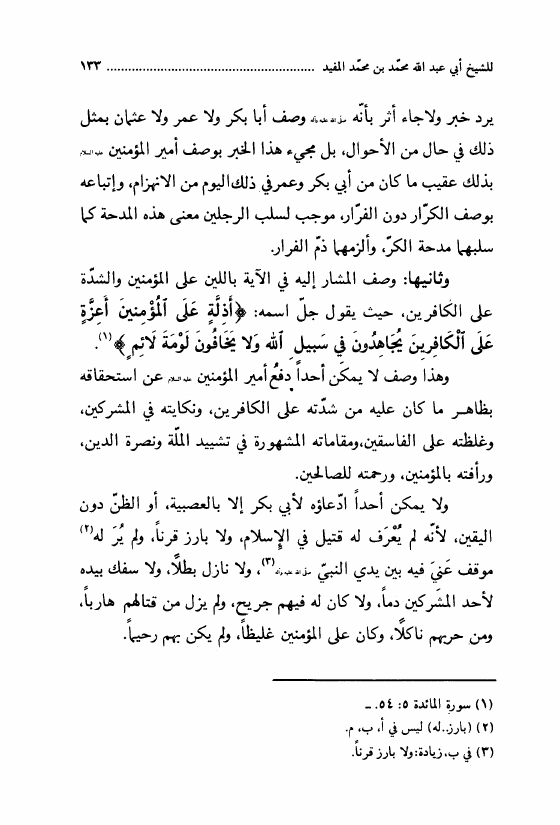 للشيخ أبي عبد الله محمّد بن محمّد المفيد ........................................................ ١٣٣
يرد خبر ولاجاء أثر بأنّه صلى الله عليه وآله وصف أبا بكر ولا عمر ولا عثمان بمثل
ذلك في حال من الأحوال، بل مجيء هذا الخبر بوصف أمير المؤمنين عليه السلام
بذلك عقيب ما كان من أبي بكر وعمرفي ذلك اليوم من الانهزام، وإتباعه
بوصف الكرّار دون الفرّار، موجب لسلب الرجلين معنى هذه المدحة كما
سلبهما مدحة الكرّ، وألزمهما ذمّ الفرار.
وثانيها: وصف المشار إليه في الآية باللين على المؤمنين والشدّة
على الكافرين، حيث يقول جلّ اسمه: ﴿أَذِلَّةٍ عَلَى ٱلْمُؤْمِنِينَ أَعِزَّةٍ
عَلَى ٱلْكَافِرِينَ يُجَاهِدُونَ فِي سَبِيلِ ٱللهِ وَلا يَخَافُونَ لَوْمَةَ لَائِمٍ﴾(١).
وهذا وصف لا يمكن أحداً دفعُ أمير المؤمنين عليه السلام عن استحقاقه
بظاهر ما كان عليه من شدّته على الكافرين، ونكايته في المشركين،
وغلظته على الفاسقين،ومقاماته المشهورة في تشييد الملّة ونصرة الدين،
ورأفته بالمؤمنين، ورحمته للصالحين.
ولا يمكن أحداً ادّعاؤه لأبي بكر إلا بالعصبية، أو الظنّ دون
اليقين، لأنّه لم يُعْرَف له قتيل في الإسلام، ولا بارز قرناً، ولم يُرَ له(٢)
موقف عَنيَ فيه بين يدي النبيّ صلى الله عليه وآله(٣)، ولا نازل بطلاً، ولا سفك بيده
لأحد المشركين دماً، ولا كان له فيهم جريح، ولم يزل من قتالهم هارباً،
ومن حربهم ناكلاً، وكان على المؤمنين غليظاً، ولم يكن بهم رحيماً.
(١) سورة المائدة ٥: ٥٤. ــ
(٢) (بارز..له) ليس في أ، ب، م.
(٣) في ب، زيادة:ولا بارز قرناً.